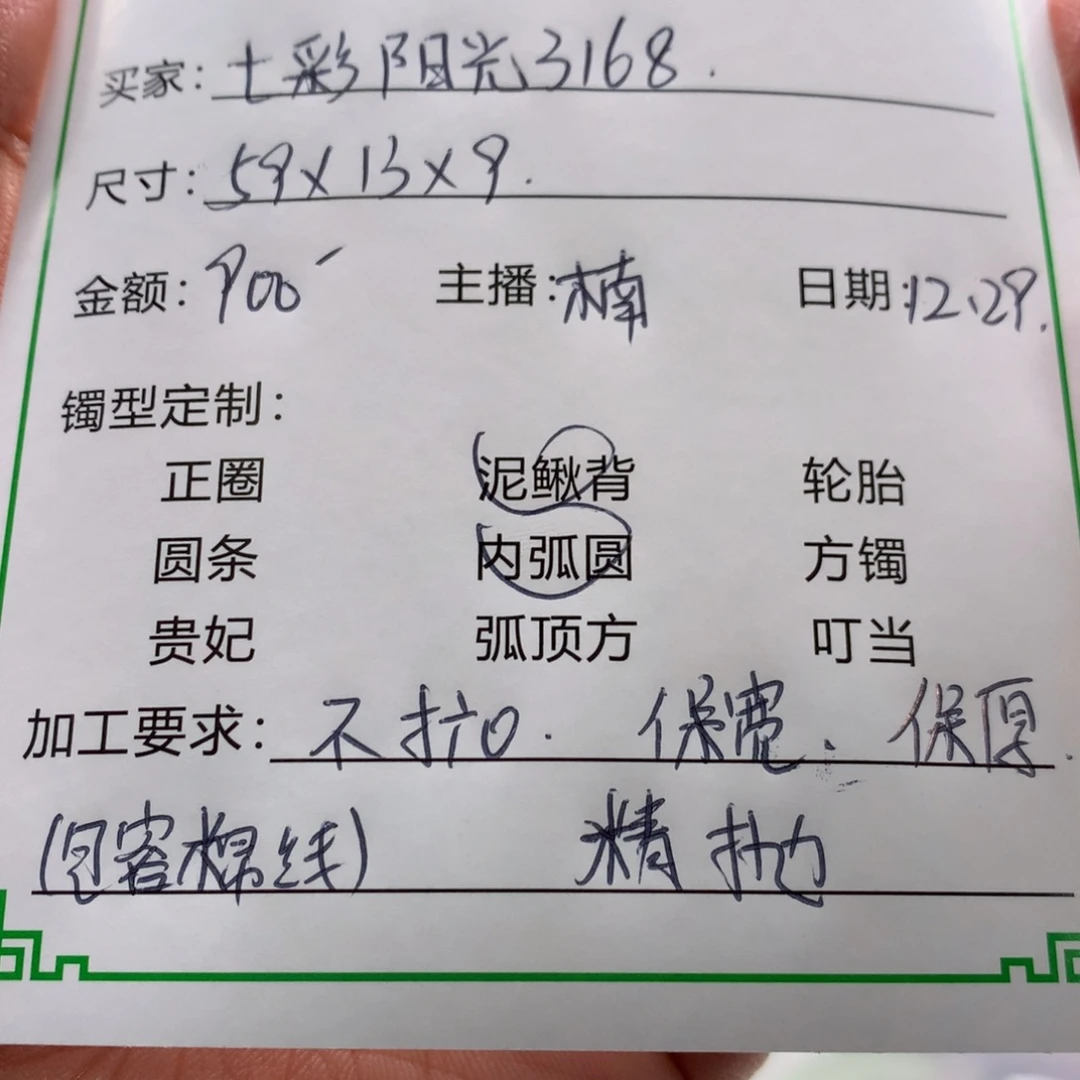 买家: 七彩阳光3168.
尺寸: 59×13×9.
金额: 900 主播: 楠 日期: 12.29.
镯型定制:
正圈 泥鳅背 轮胎
圆条 内弧圆 方镯
贵妃 弧顶方 叮当
加工要求: 不扩口. 保宽. 保厚.
(包容棉线) 精抛